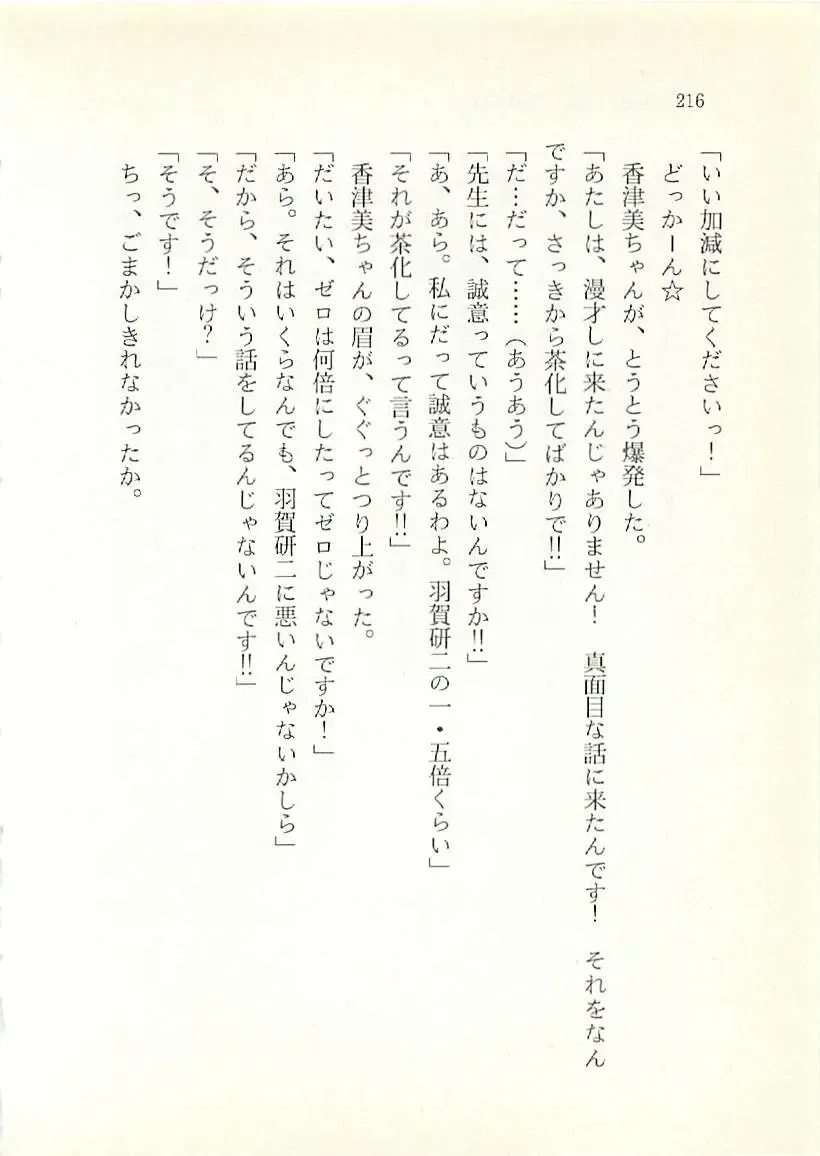 216
「いい加減にしてくださいっ！」
　どっかーん☆
　香津美ちゃんが、とうとう爆発した。
「あたしは、漫才しに来たんじゃありません！　真面目な話に来たんです！　それをなん
ですか、さっきから茶化してばかりで!!」
「だ…だって……（あうあう）」
「先生には、誠意っていうものはないんですか!!」
「あ、あら。私にだって誠意はあるわよ。羽賀研二の一・五倍くらい」
「それが茶化してるって言うんです!!」
　香津美ちゃんの眉が、ぐぐっとつり上がった。
「だいたい、ゼロは何倍にしたってゼロじゃないですか！」
「あら。それはいくらなんでも、羽賀研二に悪いんじゃないかしら」
「だから、そういう話をしてるんじゃないんです!!」
「そ、そうだっけ？」
「そうです！」
　ちっ、ごまかしきれなかったか。